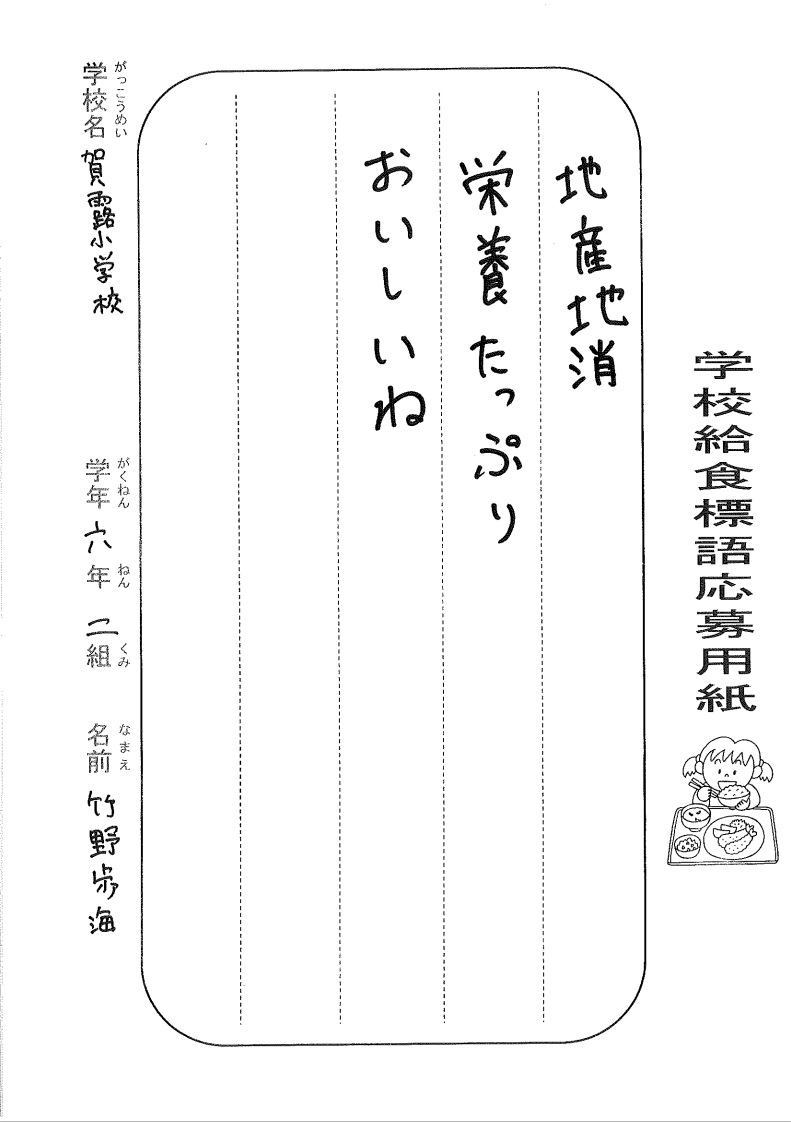 学校給食標語応募用紙
地産地消
栄養たっぷり
おいしいね
がっこうめい
学校名 賀露小学校
がくねん ねん くみ
学年 六年 二組
なまえ
名前 竹野歩海